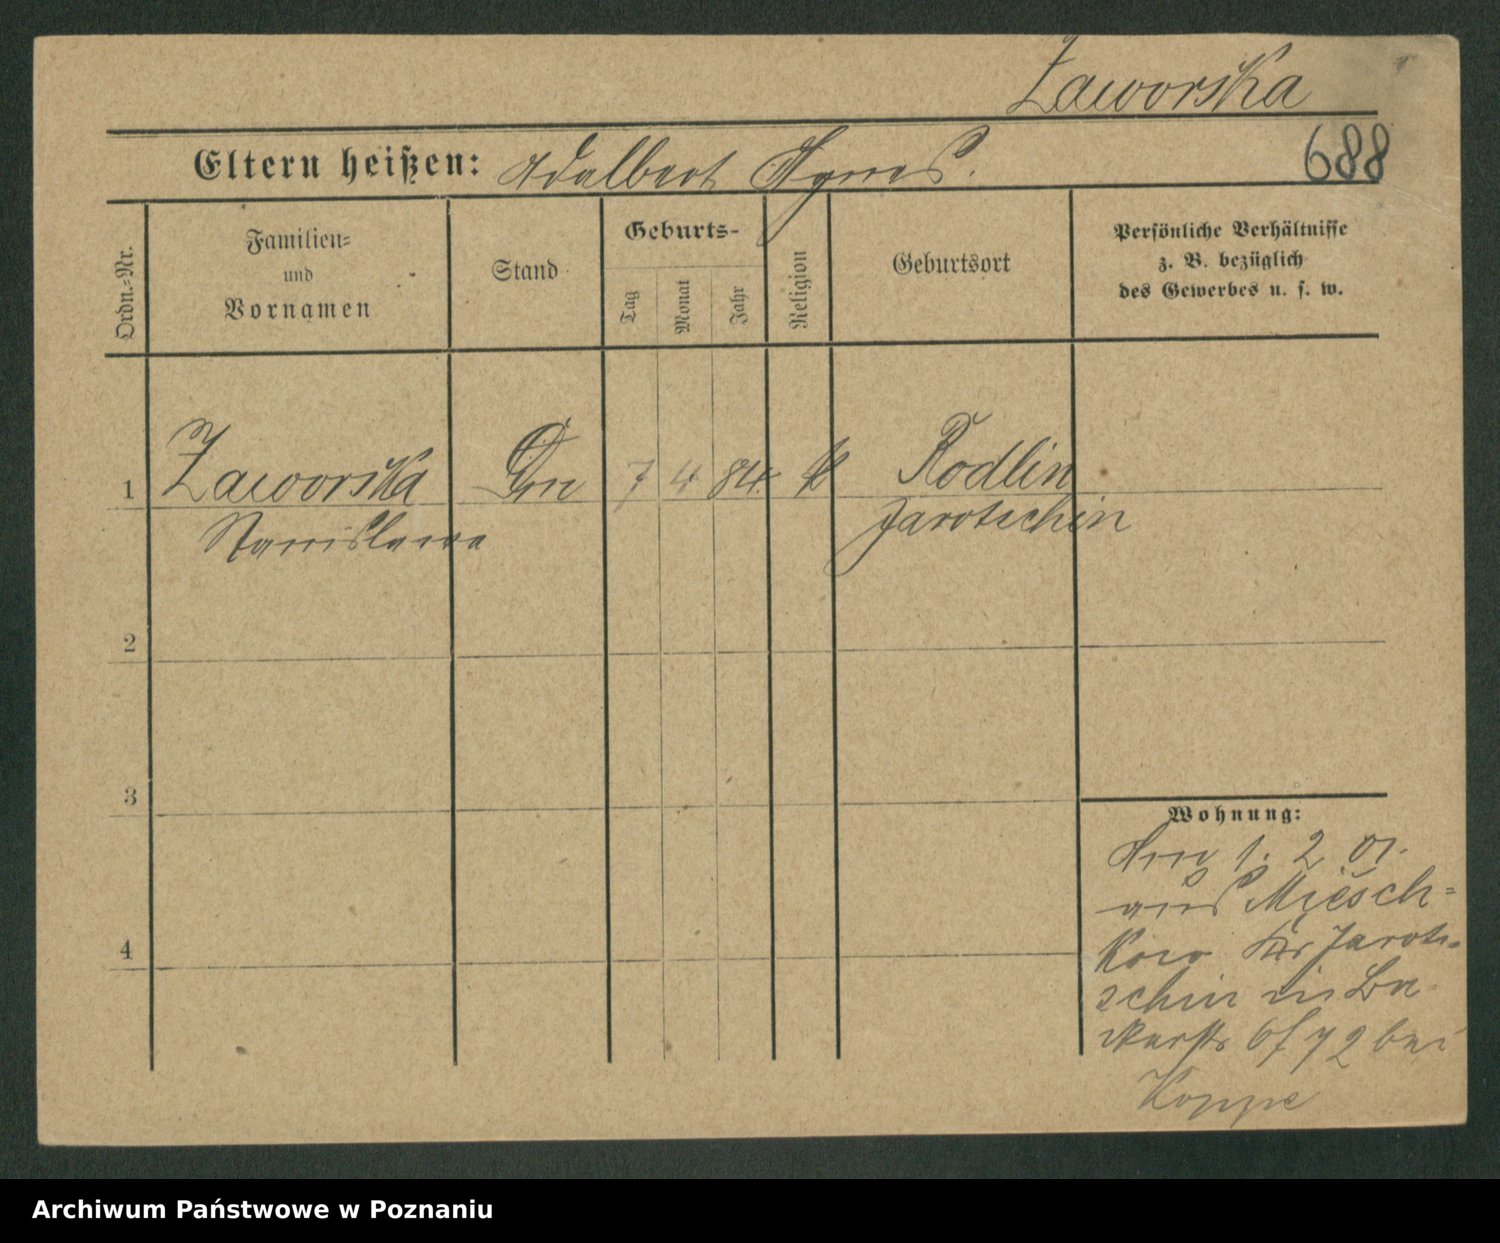 Zaworska
Eltern heißen: Adalbert Agnes.
688
Ordn.-Nr.
Familien-
und
Vornamen
Stand
Geburts-
Tag
Monat
Jahr
Religion
Geburtsort
Persönliche Verhältnisse
z. B. bezüglich
des Gewerbes u. s. w.
1 Zaworska 7 4 84. k Rodlin
Stanislawa Jarotschin
2
3
4
Wohnung:
1. 2 01.
aus Miesch-
kow Kr Jarot-
schin in
6/7 2 bei
Koppe
Archiwum Państwowe w Poznaniu